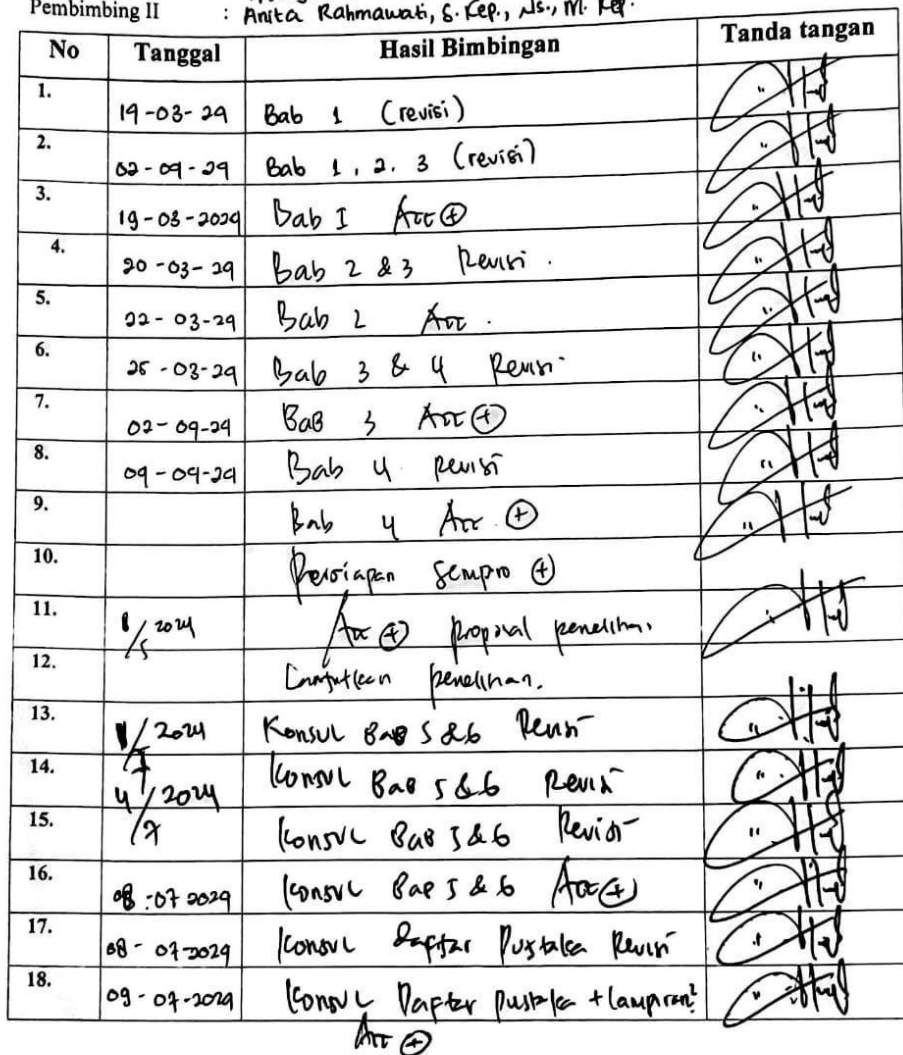 Pembimbing II : Anita Rahmawati, S.Kep., Ns., M.Kep.
No Tanggal Hasil Bimbingan Tanda tangan
1. 19-03-24 Bab 1 (revisi)
2. 02-04-24 Bab 1, 2, 3 (revisi)
3. 19-03-2024 Bab I Acc +
4. 20-03-24 Bab 2 & 3 Revisi.
5. 22-03-24 Bab 2 Acc.
6. 25-03-24 Bab 3 & 4 Revisi
7. 02-04-24 BaB 3 Acc +
8. 04-04-24 Bab 4 Revisi
9. Bab 4 Acc. +
10. Persiapan Sempro +
11. 1/5 2024 Acc + proposal penelitian.
12. Lanjutkan penelitian.
13. 1/7 2024 Konsul BaB 5 & 6 Revisi
14. 4/7 2024 Konsul BaB 5 & 6 Revisi
15. Konsul BaB 5 & 6 Revisi
16. 08-07 2024 Konsul BaB 5 & 6 Acc +
17. 08-07-2024 Konsul Daftar Pustaka Revisi
18. 09-07-2024 Konsul Daftar Pustaka + lampiran2
Acc +